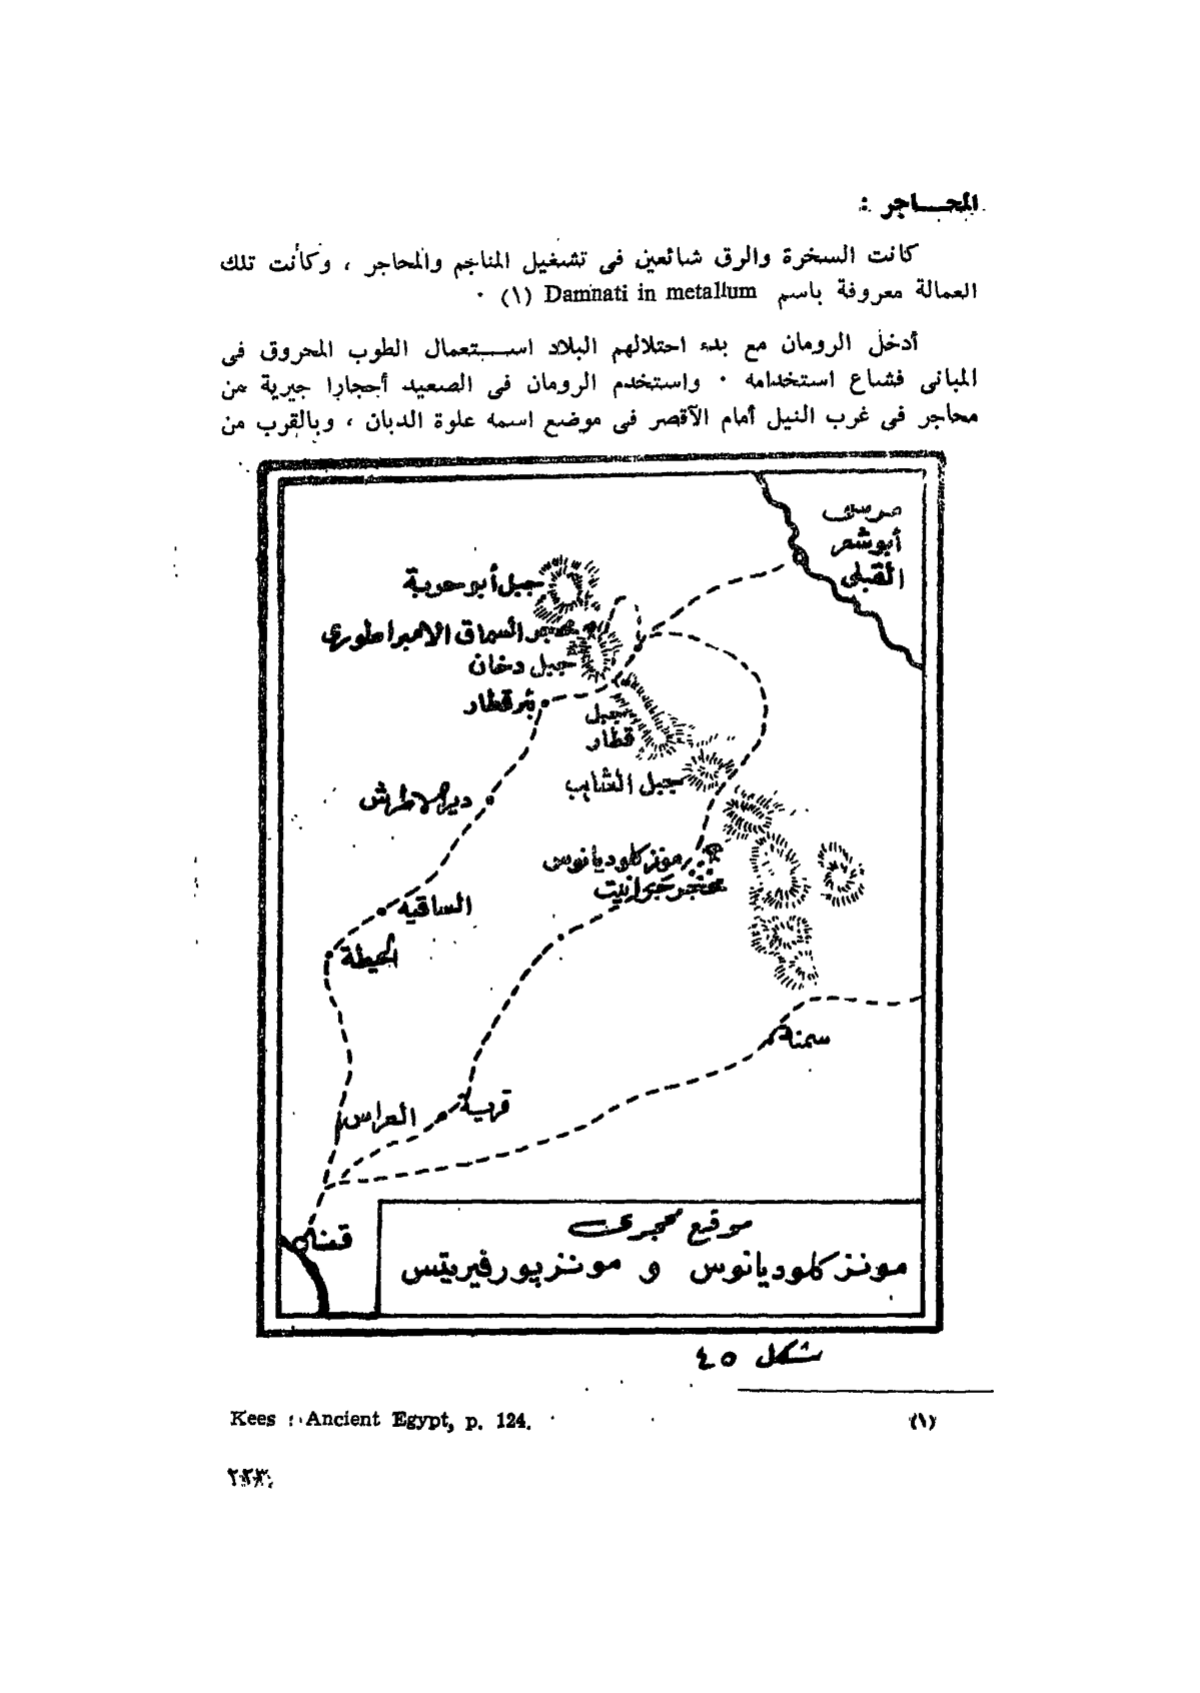 المحـــاجر :
كانت السخرة والرق شائعين فى تشغيل المناجم والمحاجر ، وكانت تلك
العمالة معروفة باسم Damnati in metallum (١) ·
أدخل الرومان مع بدء احتلالهم البلاد استــعمال الطوب المحروق فى
المبانى فشاع استخدامه · واستخدم الرومان فى الصعيد أحجارا جيرية من
محاجر فى غرب النيل أمام الآقصر فى موضع اسمه علوة الدبان ، وبالقرب من
مرسى
أبوشعر
القبلى
جبل أبوحربة
محجر السماق الامبراطورى
جبل دخان
بئر قطار
جبل
قطار
جبل الشايب
دير الاطرش
مونز كلوديانوس
محجر جرانيت
الساقيه
الحيطة
سمنة
قرية
العراس
قنــا
موقع محجرى
مونز كلوديانوس و مونز بورفيريتس
شكل ٤٥
(١) Kees : Ancient Egypt, p. 124.